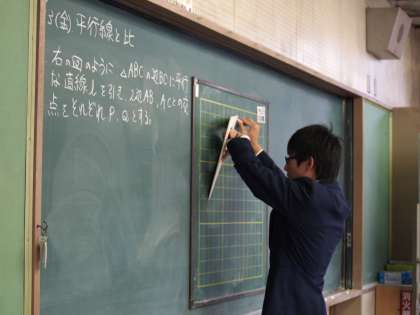 3(金)平行線と比
右の図のように △ABCの辺BCに平行
な直線lを引き、辺AB、ACとの交
点をそれぞれP、Qとする。
消火